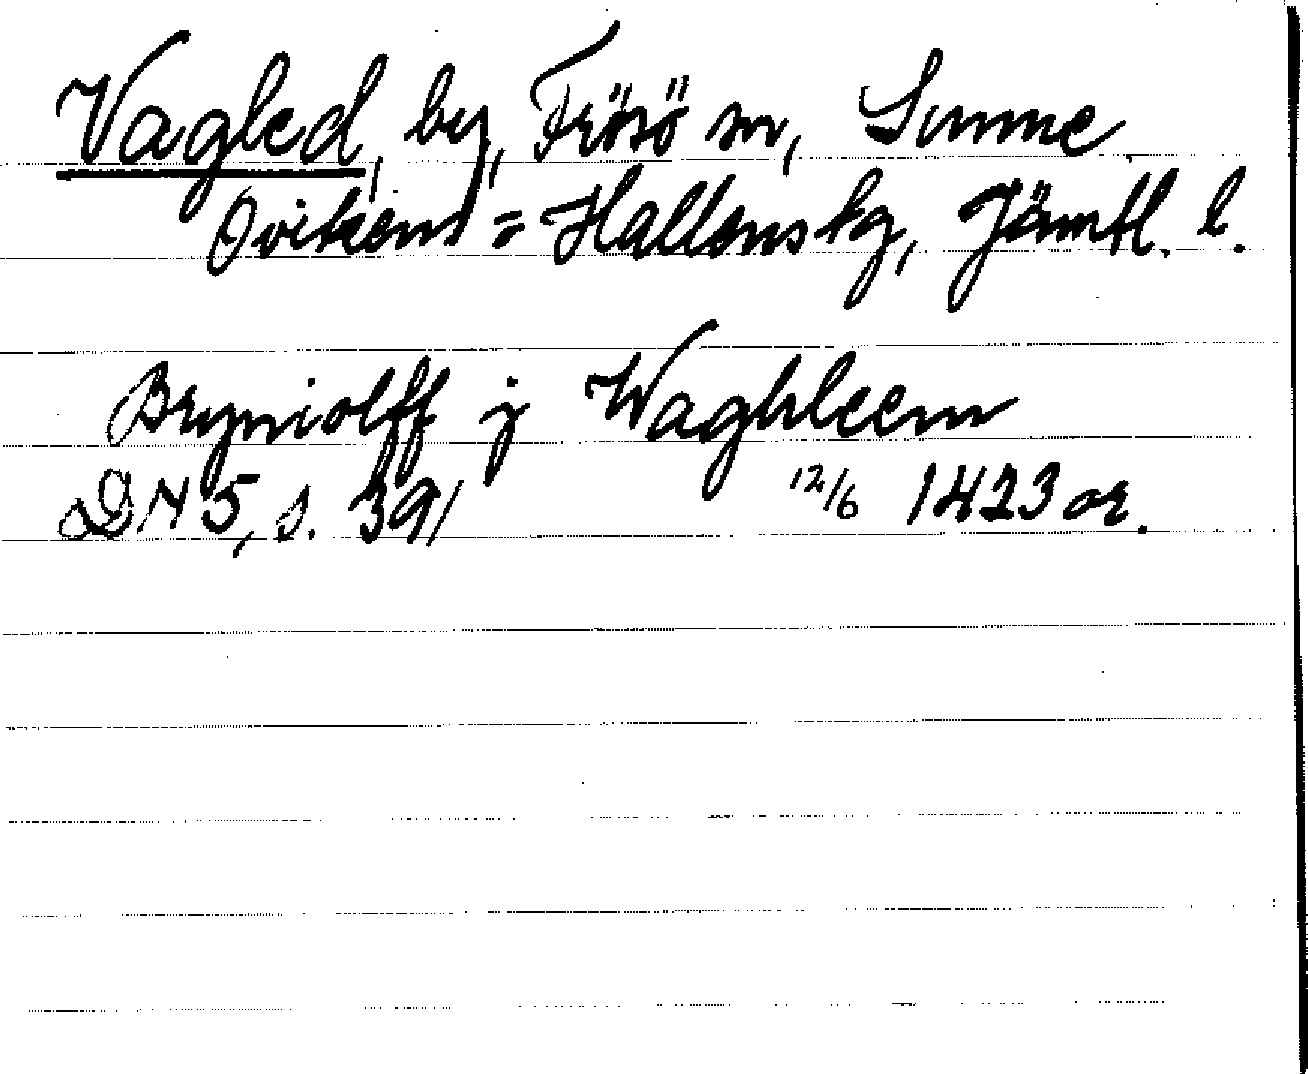 Vagled, by, Frösö sn, Sunne
Ovikens = Hallens tg, Jämtl. l.
Bryniolff j Waghleem
DN 5, s. 391 12/6 1423 or.